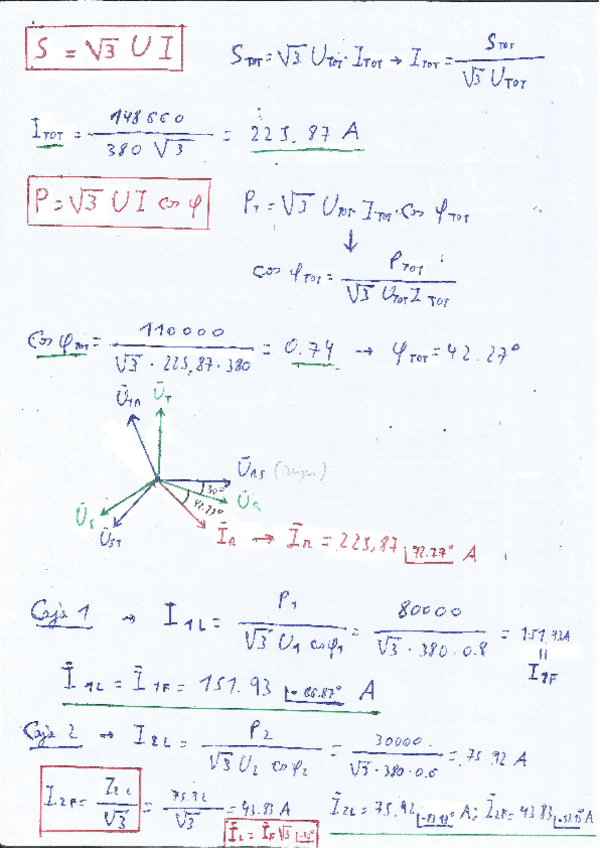 S = √3 U I
S_TOT = √3 U_TOT · I_TOT → I_TOT = S_TOT / (√3 U_TOT)
I_TOT = 148660 / (380 √3) = 225.87 A
P = √3 U I cos φ
P_T = √3 U_TOT I_TOT · cos φ_TOT
↓
cos φ_TOT = P_TOT / (√3 U_TOT I_TOT)
cos φ_TOT = 110000 / (√3 · 225.87 · 380) = 0.74 → φ_TOT = 42.27°
Ū_TR Ū_T
Ū_RS (origen)
30°
42.27°
Ū_R
Ū_S
Ū_ST
Ī_R → Ī_R = 225,87 |72.27° A
Caja 1 → I_1L = P_1 / (√3 U_1 cos φ_1) = 80000 / (√3 · 380 · 0.8) = 151.93A
=
I_1F
Ī_1L = Ī_1F = 151.93 |-66.87° A
Caja 2 → I_2L = P_2 / (√3 U_2 cos φ_2) = 30000 / (√3 · 380 · 0.6) = 75.92 A
I_2F = I_2L / √3 = 75.92 / √3 = 43.83 A
Ī_2L = 75,92 A; Ī_2F = 43.83 A
Ī_L = Ī_F √3